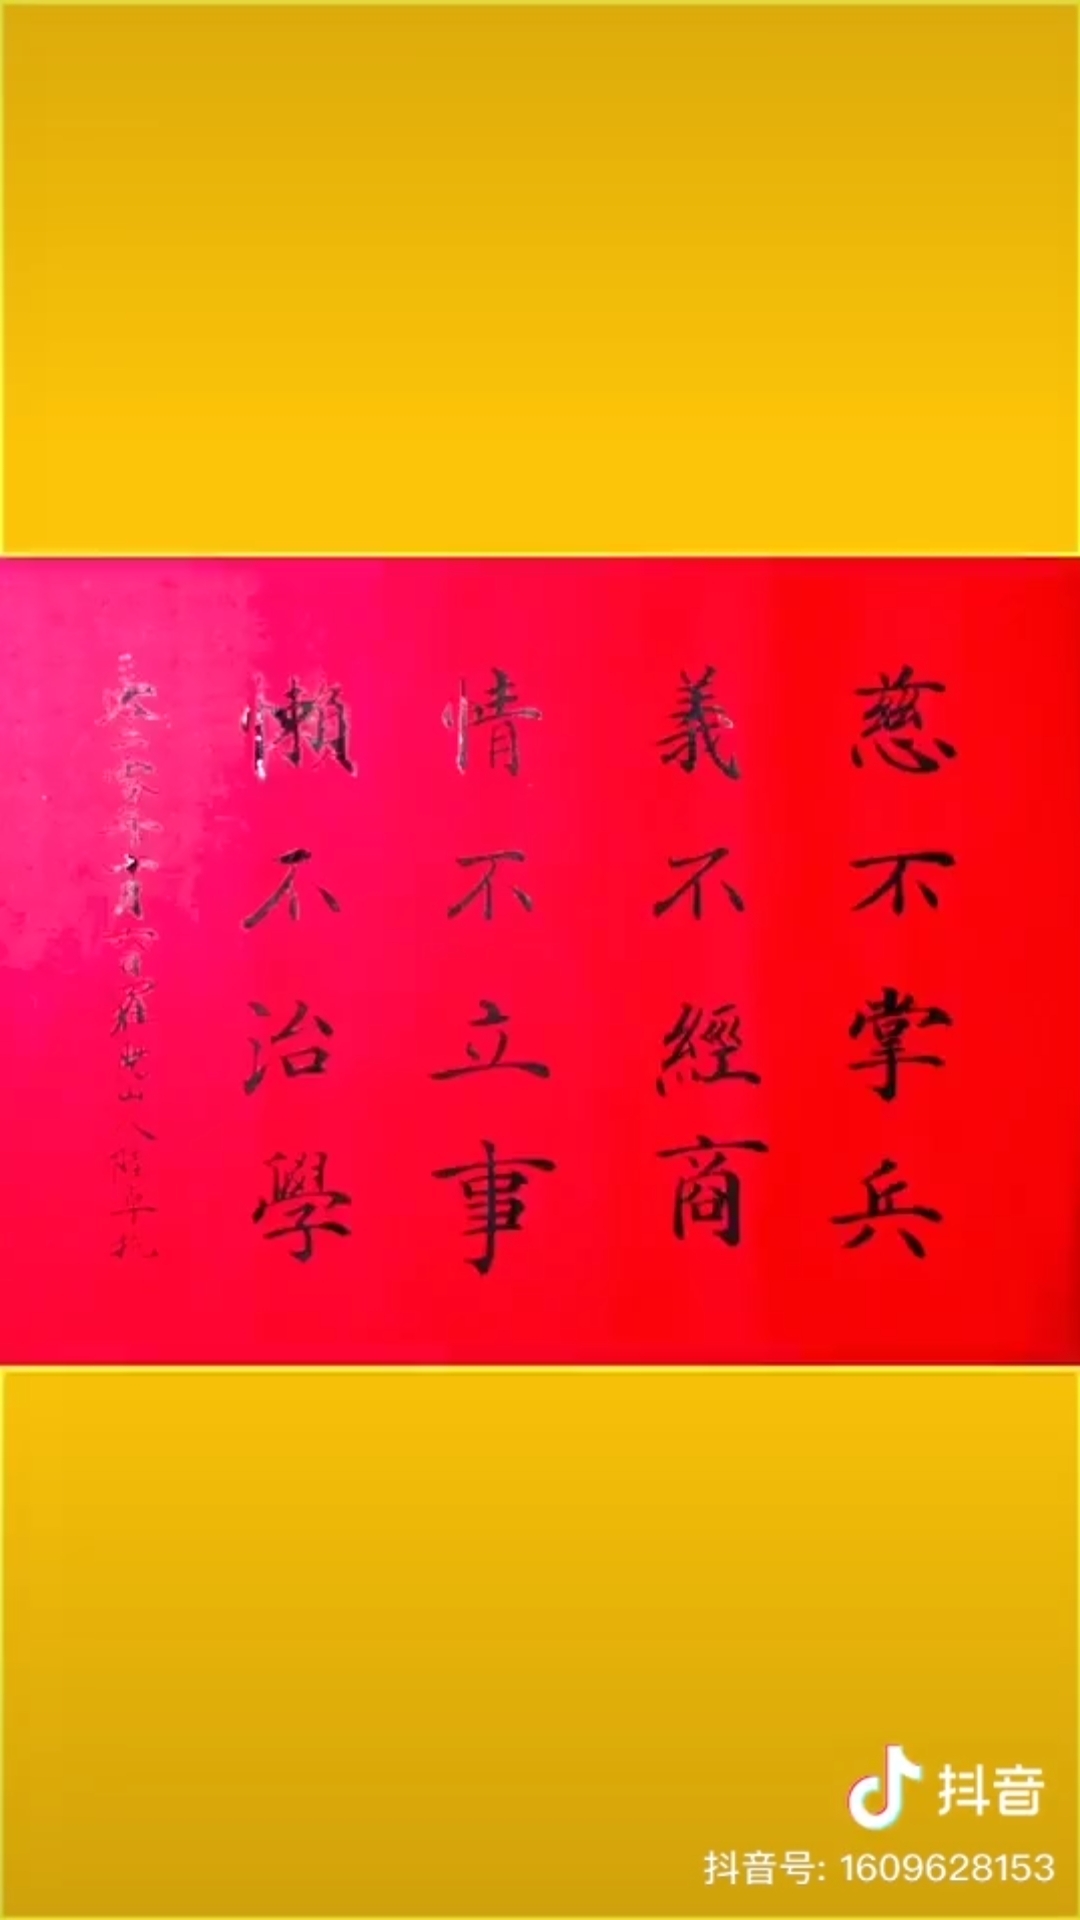 慈不掌兵
義不經商
情不立事
懶不治學
抖音
抖音号: 1609628153